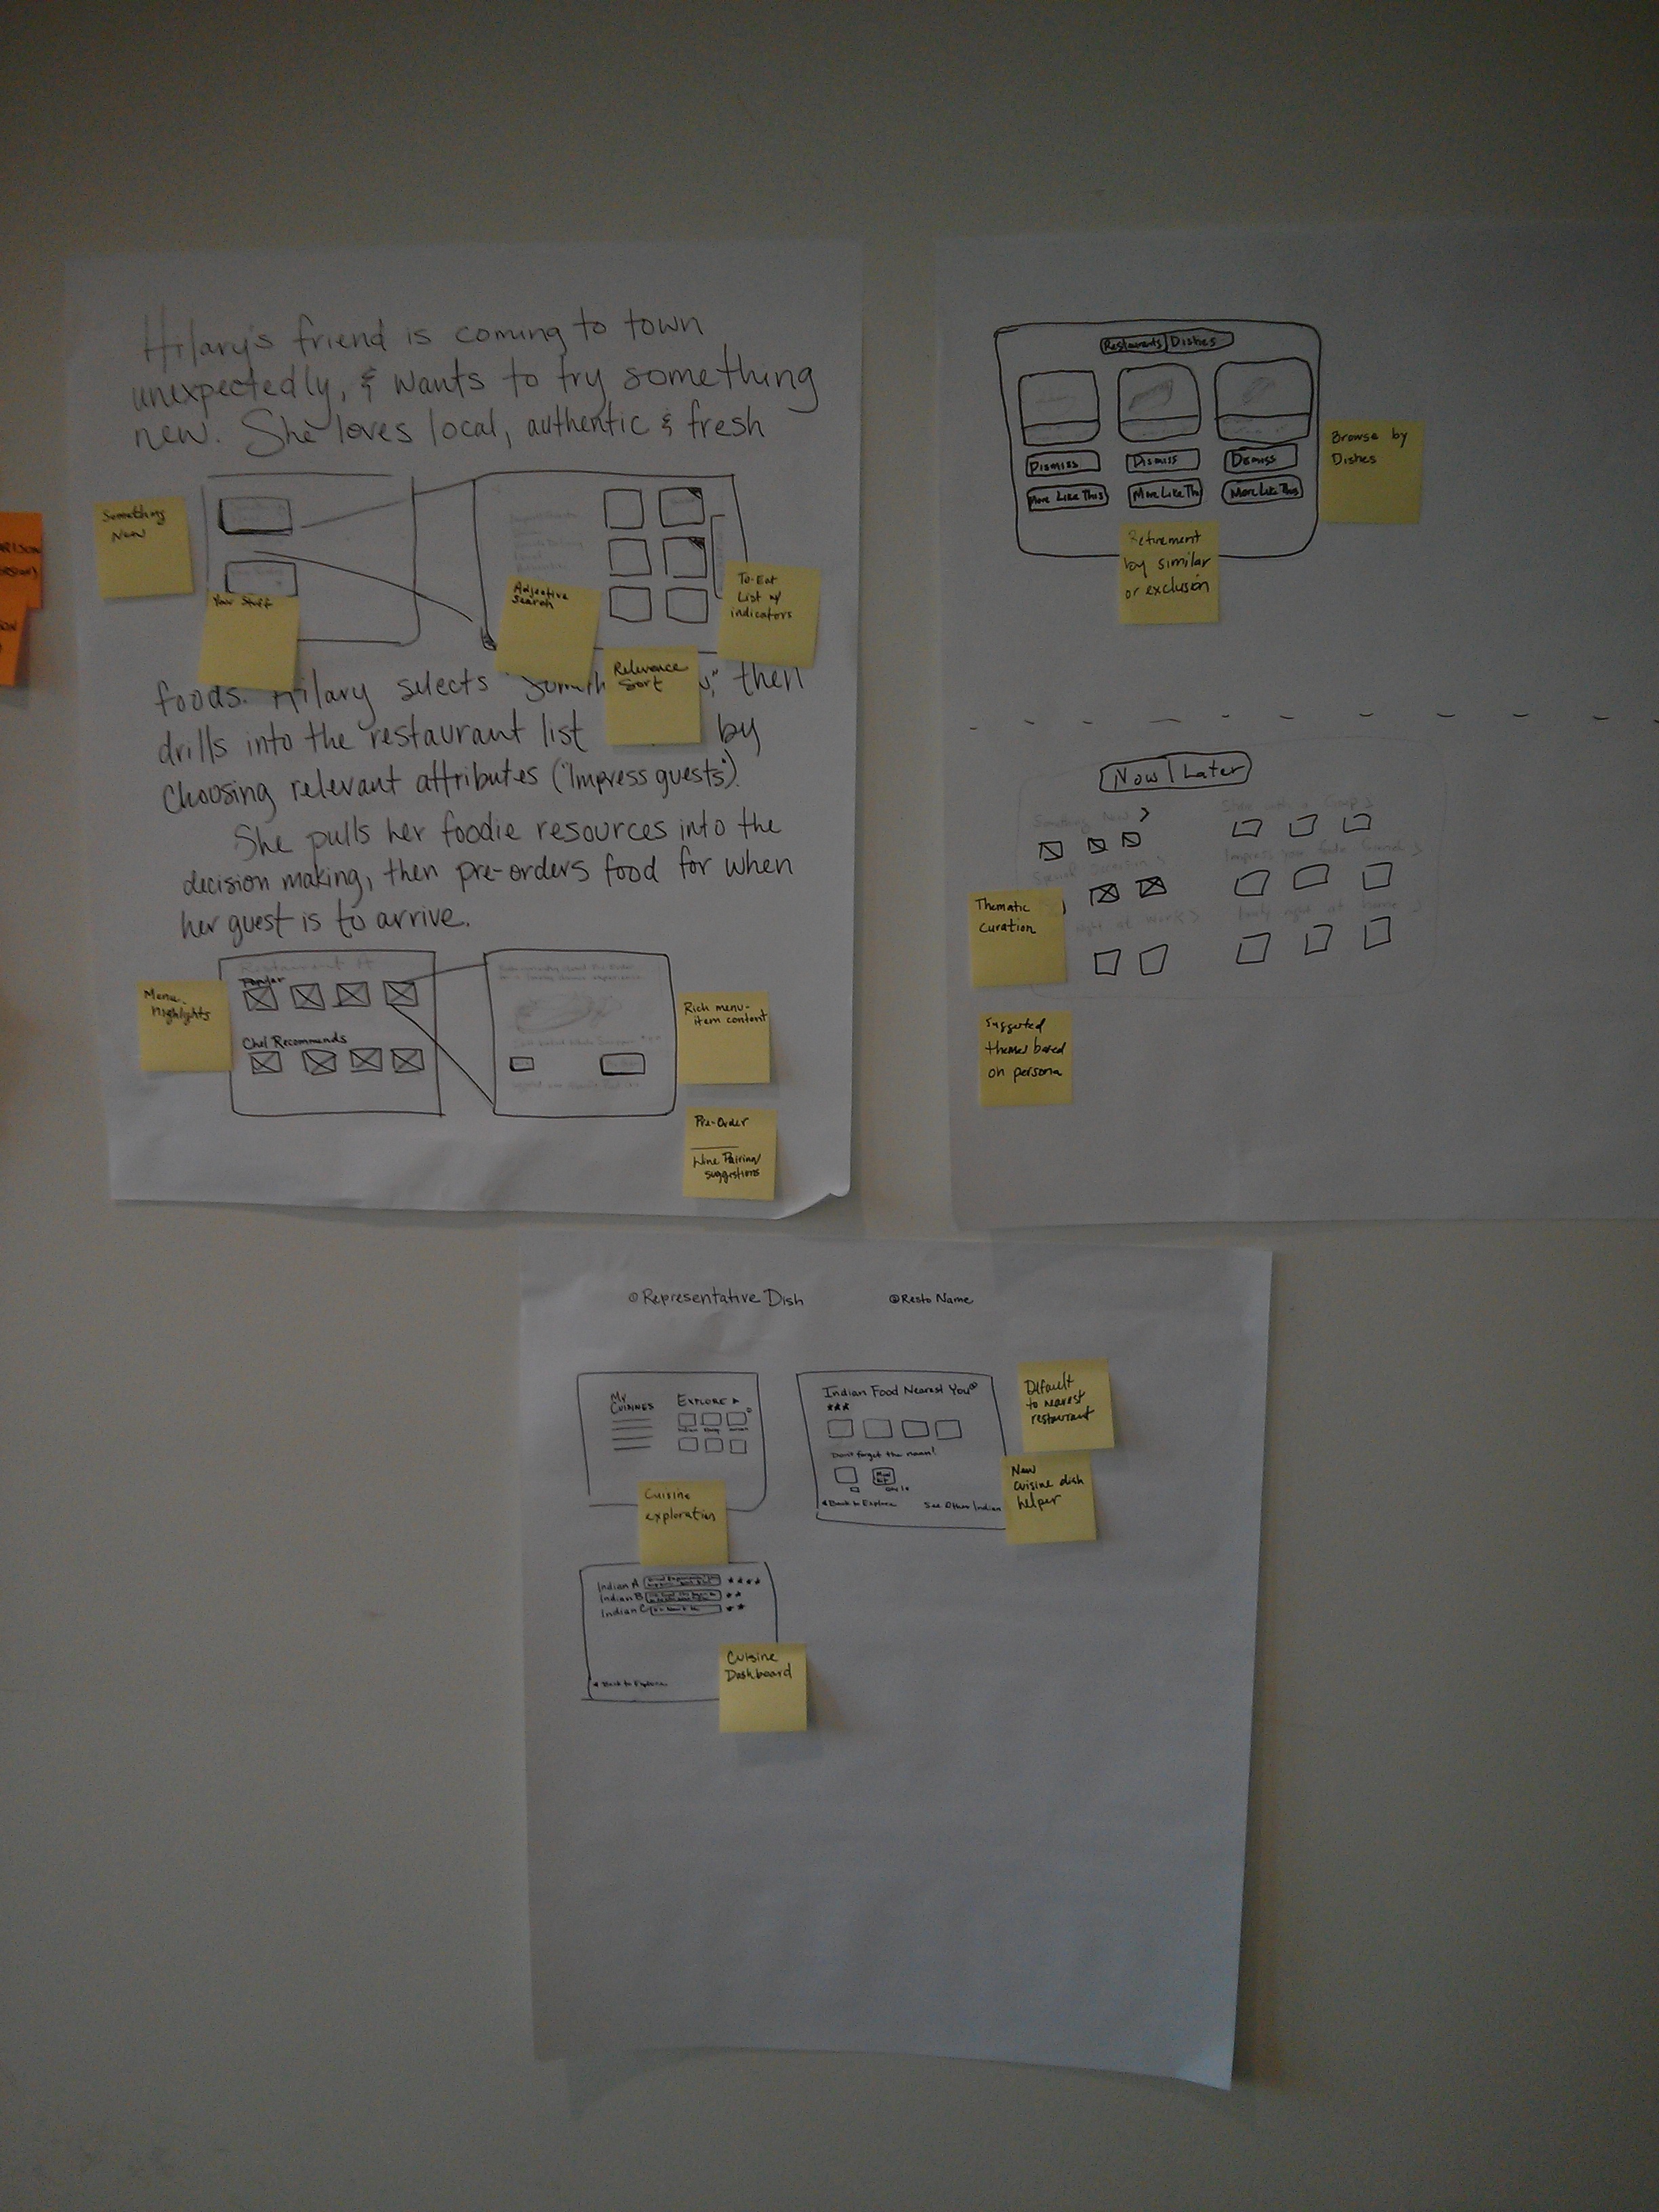 Hilary's friend is coming to town
unexpectedly, & wants to try something
new. She loves local, authentic & fresh
Something
New
Your Stuff
Adjective
search
To-Eat
List w/
indicators
Relevance
Sort
foods. Hilary selects "Someth then
drills into the restaurant list by
choosing relevant attributes ("Impress guests").
She pulls her foodie resources into the
decision making, then pre-orders food for when
her guest is to arrive.
Menu
highlights
Popular
Chef Recommends
Rich menu-
item content
Pre-Order
Wine Pairing/
suggestions
Restaurants Dishes
Dismiss Dismiss Dismiss
More Like This More Like This More Like This
Browse by
Dishes
Refinement
by similar
or exclusion
Now | Later
Something New >
Share with a Group >
Thematic
curation
Suggested
themes based
on persona
① Representative Dish
② Resto Name
My
Cuisines
Explore
Cuisine
exploration
Indian Food Nearest You
Don't forget the naan!
Back to Explore
See Other Indian
Default
to nearest
restaurant
New
cuisine dish
helper
Indian A
Indian B
Indian C
Back to Explore
Cuisine
Dashboard